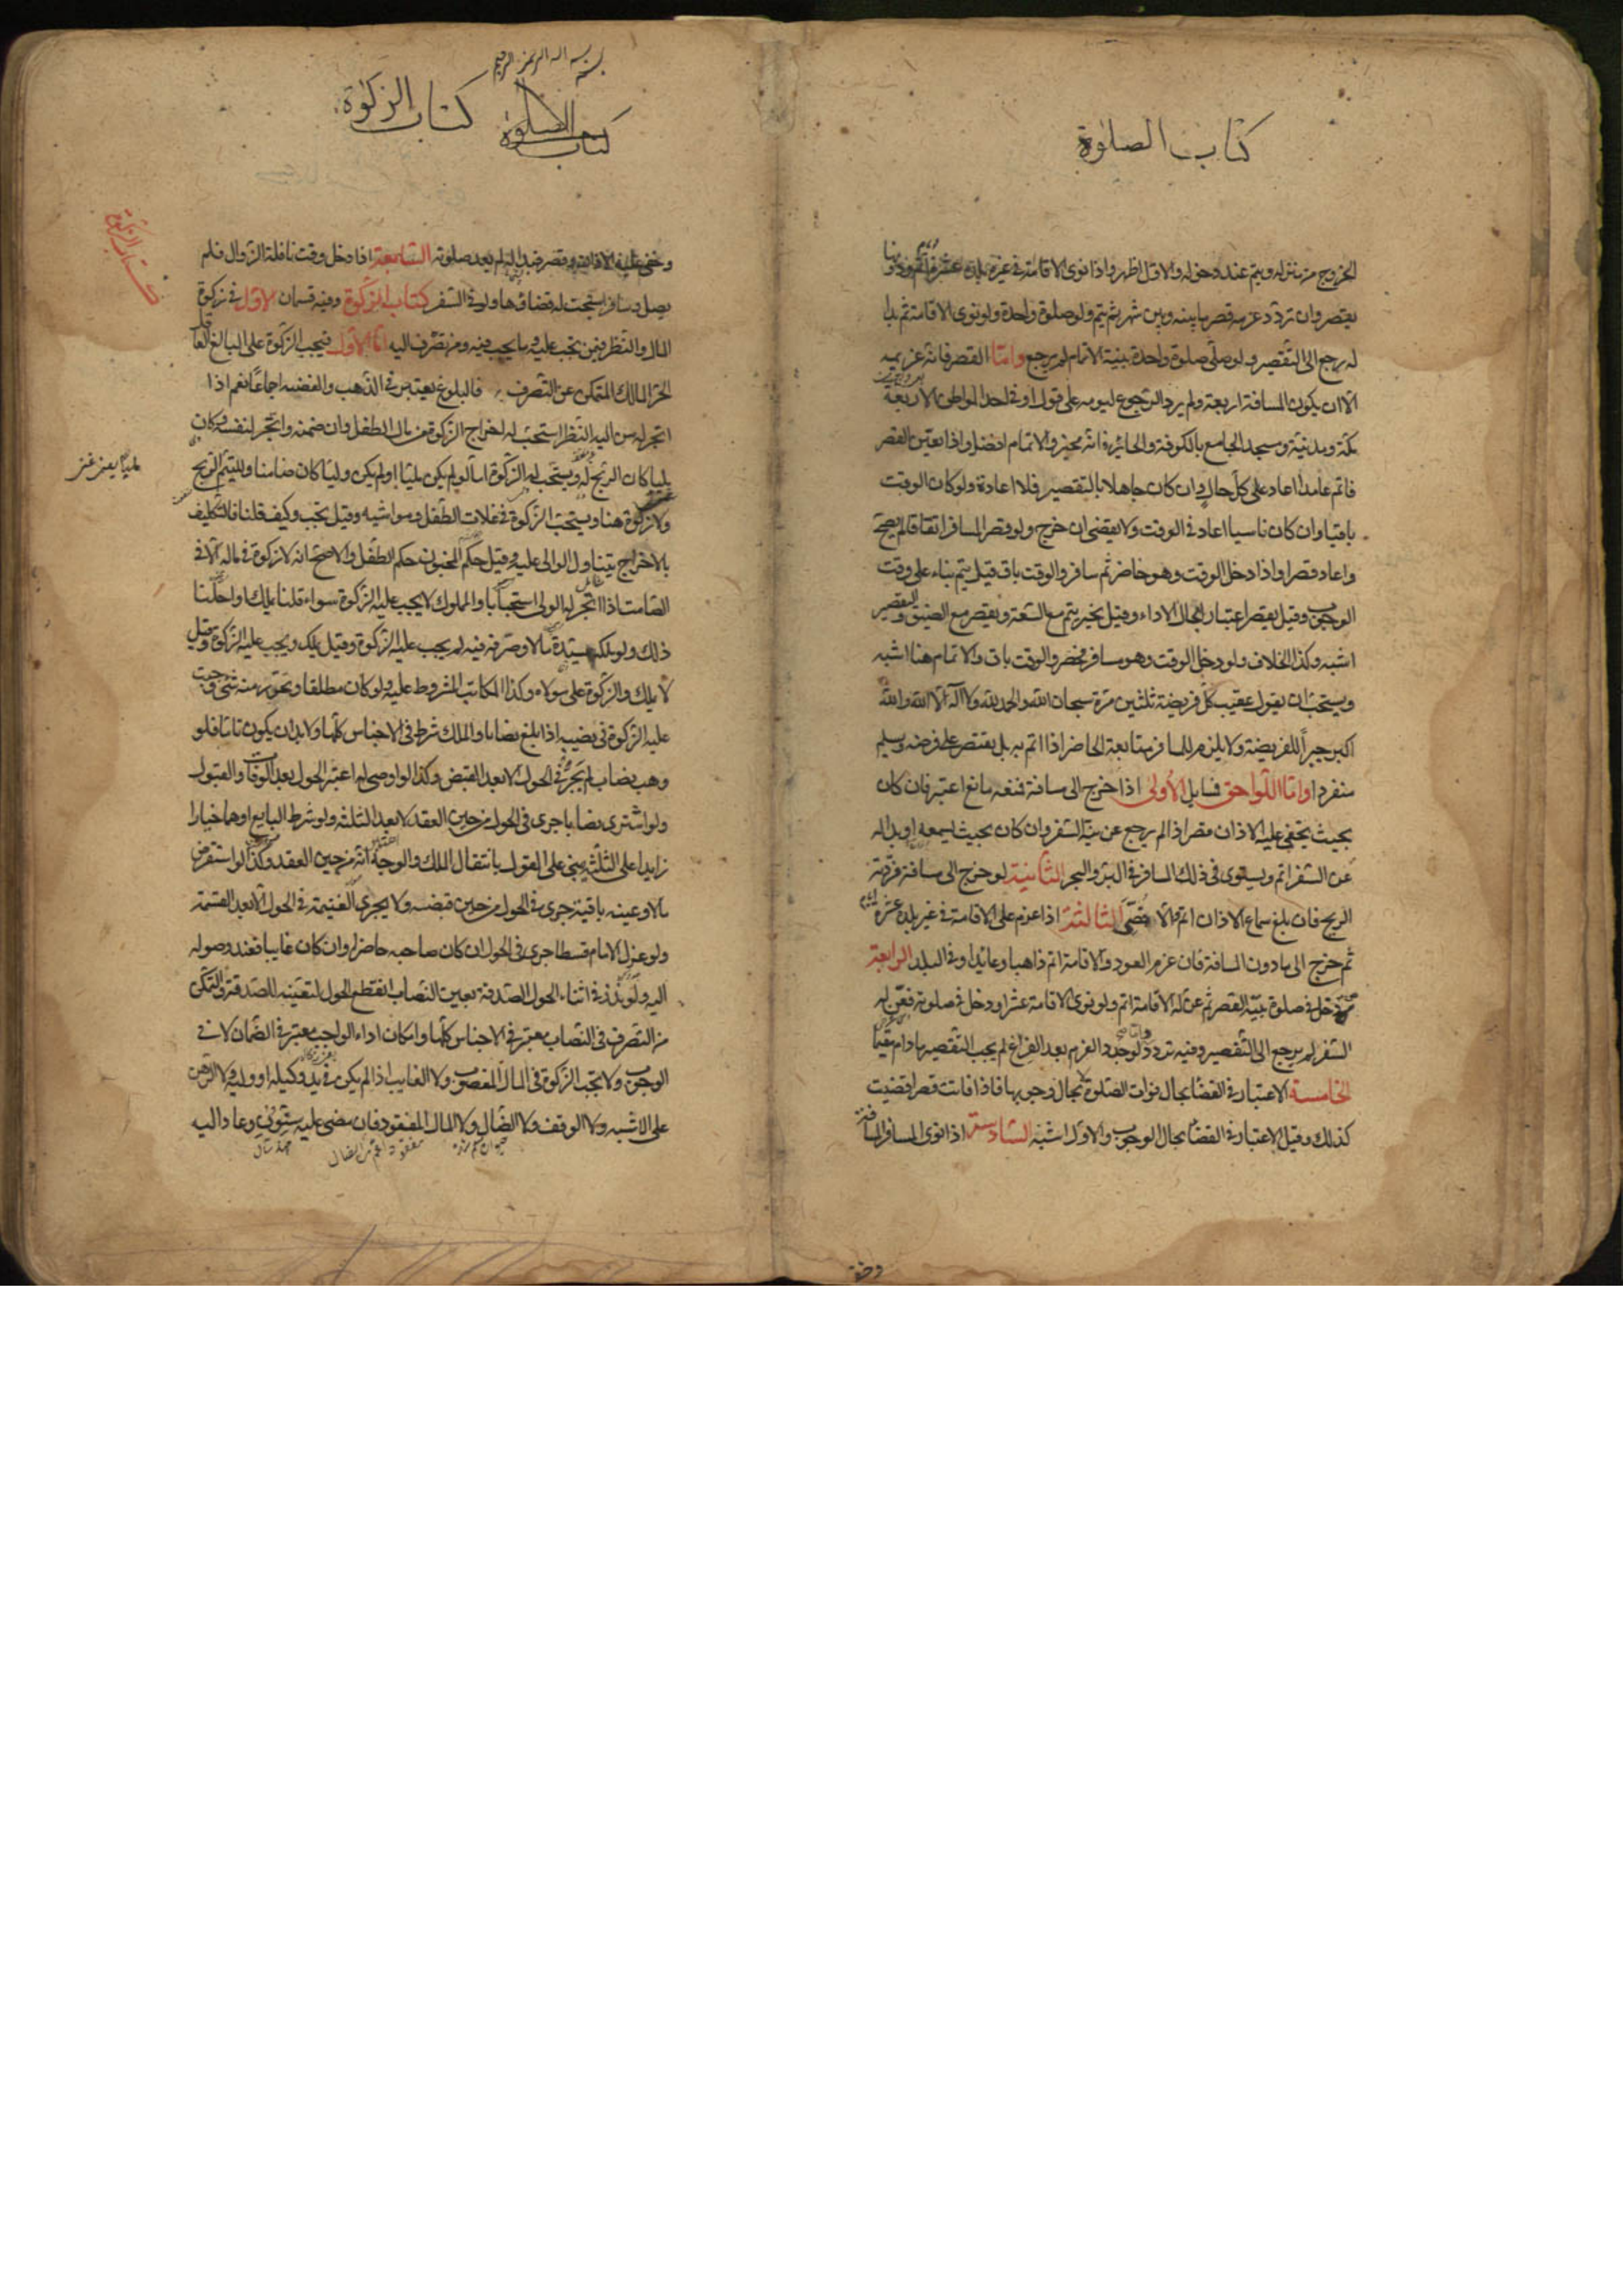 كتاب الصلوة
الخروج من منزله ويتم عند دخوله والاول اظهر واذا نوى الاقامة في غير بلده عشرة اتم ودونها
يقصر وان تردد عزمه قصر ما بينه وبين شهر ثم يتم ولو صلوة واحدة ولو نوى الاقامة ثم بدا
له رجع الى التقصير ولو صلى صلوة واحدة بنية الاتمام لم يرجع واما القصر فانه عزيمة
الا ان يكون المسافة اربعة ولم يرد الرجوع ليومه على قول او في احد المواطن الاربعة
مكة ومدينة ومسجد الجامع بالكوفة والحائر فانه مخير والاتمام افضل واذا تعين القصر
فاتم عامدا اعاد على كل حال وان كان جاهلا بالتقصير فلا اعادة ولو كان الوقت
باقيا وان كان ناسيا اعاد في الوقت ولا يقضى ان خرج ولو قصر المسافر اتفاقا لم يصح
واعاد قصرا واذا دخل الوقت وهو حاضر ثم سافر والوقت باق قيل يتم بناء على وقت
الوجوب وقيل يقصر اعتبارا بحال الاداء وقيل يخير يتم مع السعة ويقصر مع الضيق والتقصير
اشبه وكذا الخلاف ولو دخل الوقت وهو مسافر فحضر والوقت باق والاتمام هنا اشبه
ويستحب ان يقول عقيب كل فريضة ثلثين مرة سبحان الله والحمد لله ولا اله الا الله والله
اكبر جبرا للفريضة ولا يلزم المسافر متابعة الحاضر اذا اتم به بل يقتصر على فرضه ويسلم
منفردا واما اللواحق فسايل الاولى اذا خرج الى مسافة فمنعه مانع اعتبر فان كان
بحيث يخفى عليه الاذان قصر اذا لم يرجع عن نية السفر وان كان بحيث يسمعه او بدا له
عن السفر اتم ويستوى في ذلك المسافر في البر والبحر الثانية لو خرج الى مسافة فردته
الريح فان بلغ سماع الاذان اتم والا قصر الثالثة اذا عزم على الاقامة في غير بلده عشرة ايام
ثم خرج الى ما دون المسافة فان عزم العود والاقامة اتم ذاهبا وعايدا وفي البلد الرابعة
من دخل في صلوة بنية القصر ثم عن له الاقامة اتم ولو نوى الاقامة عشرا ودخل في صلوته فعن له
السفر لم يرجع الى التقصير وفيه تردد اما لو جدد العزم بعد الفراغ لم يجب التقصير ما دام مقيما
الخامسة الاعتبار في القضا بحال فوات الصلوة لا بحال وجوبها فاذا فاتت قصرا قضيت
كذلك وقيل الاعتبار في القضا بحال الوجوب والاول اشبه السادسة اذا نوى المسافر المسافة
وخفى
بسم الله الرحمن الرحيم
كتاب الصلوة كتاب الزكوة
كتاب الزكوة
وخفى عليه الاذان وقصر فبدا له لم يعد صلوته السابعة اذا دخل وقت نافلة الزوال فلم
يصل وسافر استحب له قضاؤها ولو في السفر كتاب الزكوة وفيه قسمان الاول في زكوة
المال والنظر فيمن تجب عليه وما يجب فيه ومن تصرف اليه اما الاول فيجب الزكوة على البالغ العاقل
الحر المالك المتمكن عن التصرف فالبلوغ يعتبر في الذهب والفضة اجماعا نعم اذا
اتجر له من اليه النظر استحب له اخراج الزكوة من مال الطفل وان ضمنه واتجر لنفسه وكان
مليا كان الربح له ويستحب له الزكوة اما لو لم يكن مليا او لم يكن وليا كان ضامنا ولليتيم الربح
ولا زكوة هنا ويستحب الزكوة في غلات الطفل ومواشيه وقيل تجب وكيف قلنا فالتكليف
بالاخراج يتناول الوالى عليه وقيل حكم المجنون حكم الطفل والاصح انه لا زكوة في ماله الا في
الصامت اذا اتجر له الولى استحبابا والمملوك لا يجب عليه الزكوة سواء قلنا يملك او احلنا
ذلك ولو ملكه سيده مالا وصرفه فيه لم يجب عليه الزكوة وقيل يملك ويجب عليه الزكوة وقيل
لا يملك والزكوة على مولاه وكذا المكاتب المشروط عليه ولو كان مطلقا وتحرر منه شئ وجبت
عليه الزكوة في نصيبه اذا بلغ نصابا والملك شرط في الاجناس كلها ولا بد ان يكون تاما فلو
وهب نصاب لم يجر في الحول الا بعد القبض وكذا لو اوصى له اعتبر الحول بعد الوفاة والقبول
ولو اشترى نصابا جرى في الحول من حين العقد لا بعد الثلثة ولو شرط البايع او هما خيارا
زايدا على الثلثة بنى على القول بانتقال الملك والوجه انه من حين العقد وكذا لو استقرض
مالا وعينه باقية جرى في الحول من حين قبضه ولا يجرى الغنيمة في الحول الا بعد القسمة
ولو عزل الامام قسطا جرى في الحول ان كان صاحبه حاضرا وان كان غايبا فعند وصوله
اليه ولو نذر في اثناء الحول الصدقة بعين النصاب انقطع الحول لتعينه للصدقة والتمكن
من التصرف في النصاب معتبر في الاجناس كلها وامكان اداء الواجب معتبر في الضمان لا في
الوجوب ولا تجب الزكوة في المال المغصوب ولا الغايب اذا لم يكن في يد وكيله او وليه ولا الرهن
على الاشبه ولا الوقف ولا الضال ولا المال المفقود فان مضى عليه سنون وعاد اليه